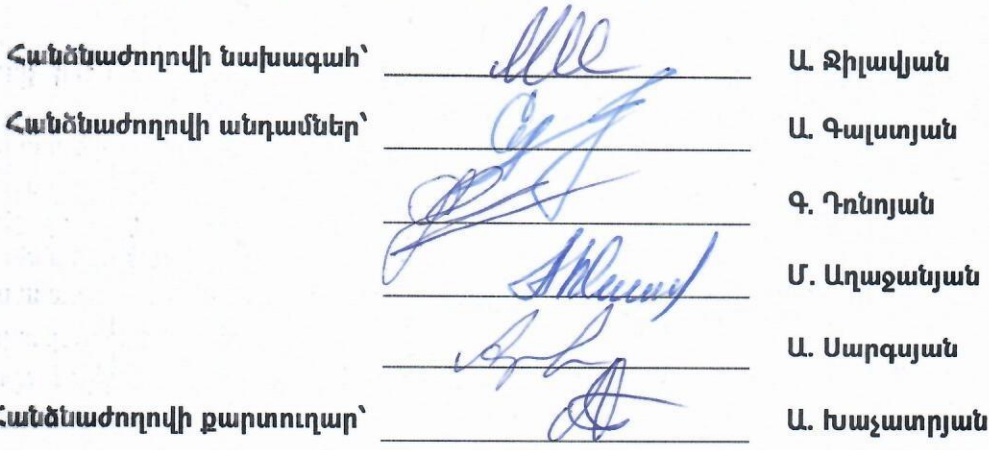 Հանձնաժողովի նախագահ՝ Ա. Ջիլավյան
Հանձնաժողովի անդամներ՝ Ա. Գալստյան
Գ. Դռնոյան
Մ. Աղաջանյան
Ա. Սարգսյան
Հանձնաժողովի քարտուղար՝ Ա. Խաչատրյան